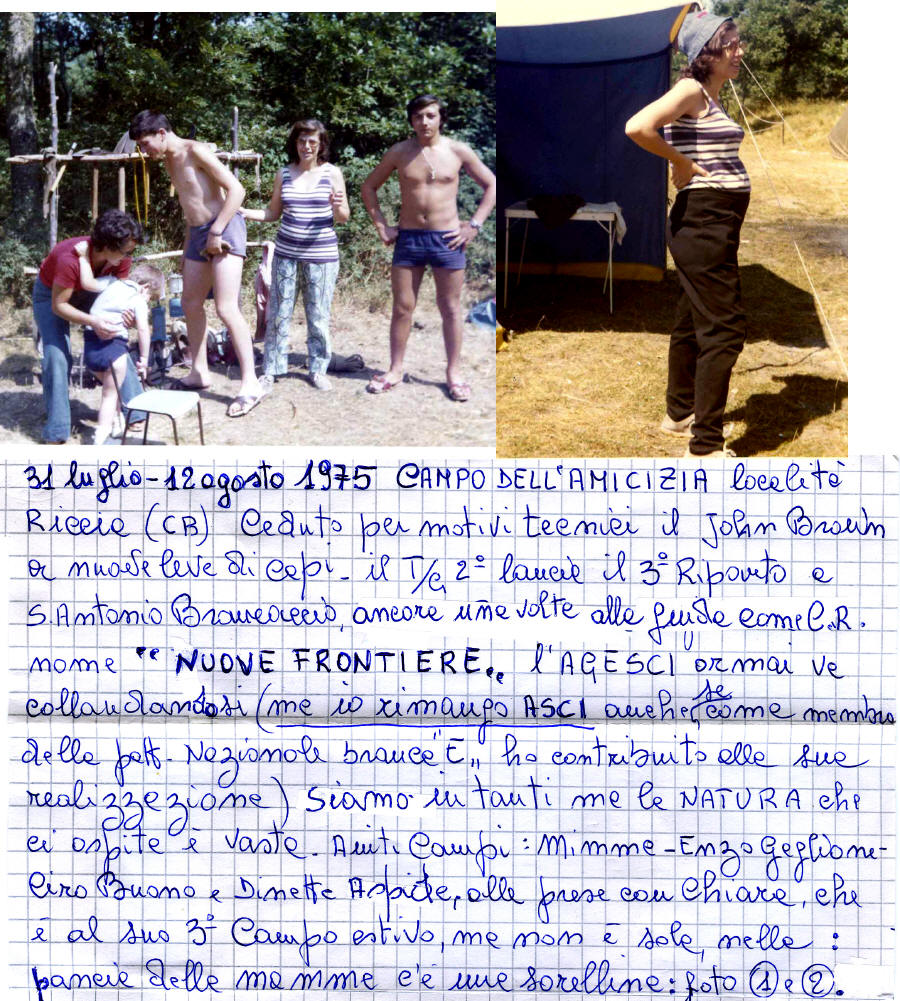 31 luglio - 12 agosto 1975 CAMPO DELL'AMICIZIA località
Riccia (CB) Ceduto per motivi tecnici il John Brown
a nuove leve di capi - il T/G 2º lancia il 3º Riparto a
S. Antonio Brancaccio, ancora una volta alla guida come C.R.
nome "NUOVE FRONTIERE" l'AGESCI ormai va
collaudandosi (ma io rimango ASCI anche se come membro
della patt. Nazionale branca "E" ho contribuito alla sua
realizzazione) Siamo in tanti ma la NATURA che
ci ospita è vasta. Aiuti Campi: Mimma - Enzo Gaglione -
Ciro Buono e Dinetta Aspide, alle prese con Chiara, che
è al suo 3º Campo estivo, ma non è sola, nella:
pancia della mamma c'è una sorellina: foto ① e ②.